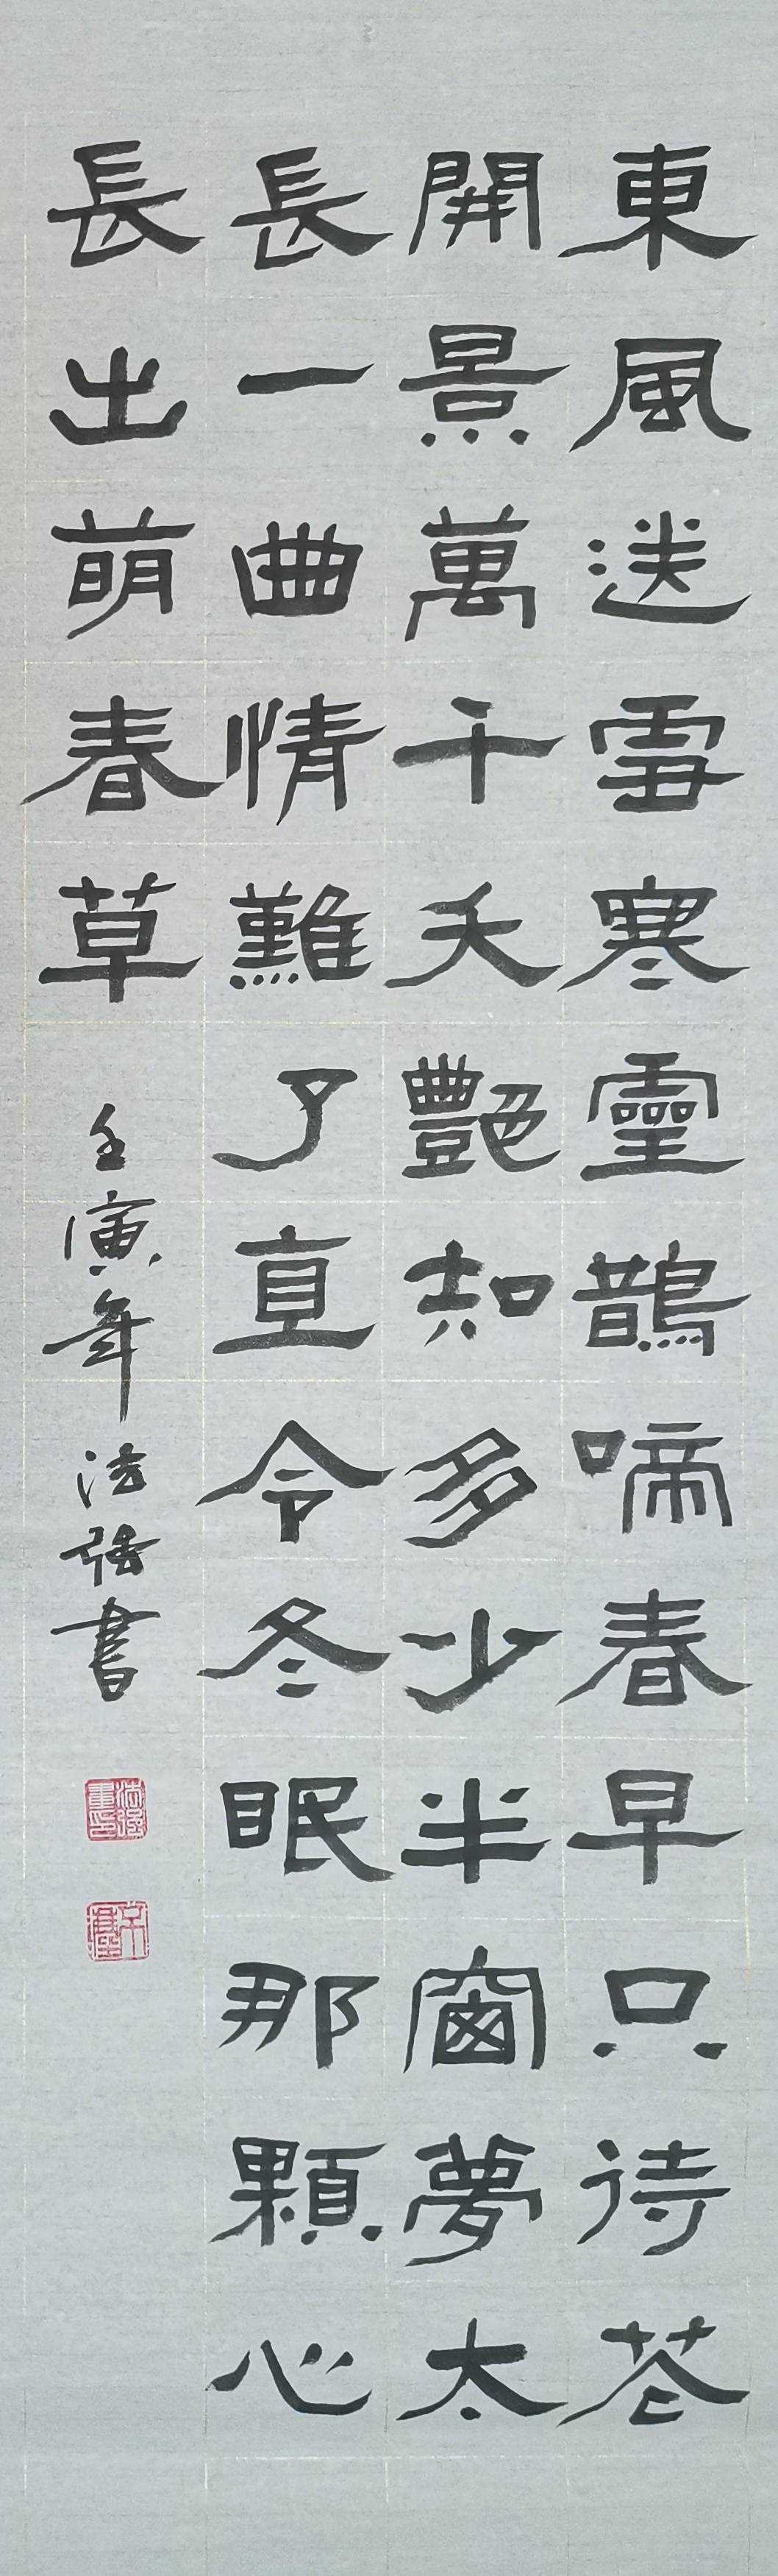 東風送雪寒靈鵲啼春早只待花
開景萬千夭艷知多少半窗夢太
長一曲情難了直令冬眠那顆心
長出萌春草
壬寅年法強書